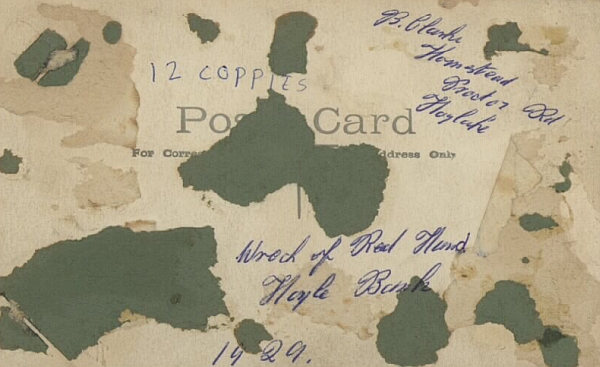 B. Clarke
Homestead
Proctor Rd
Hoylake
12 COPPIES
Post Card
For Corre ddress Only
Wreck of Red Hand
Hoyle Bank
1929.